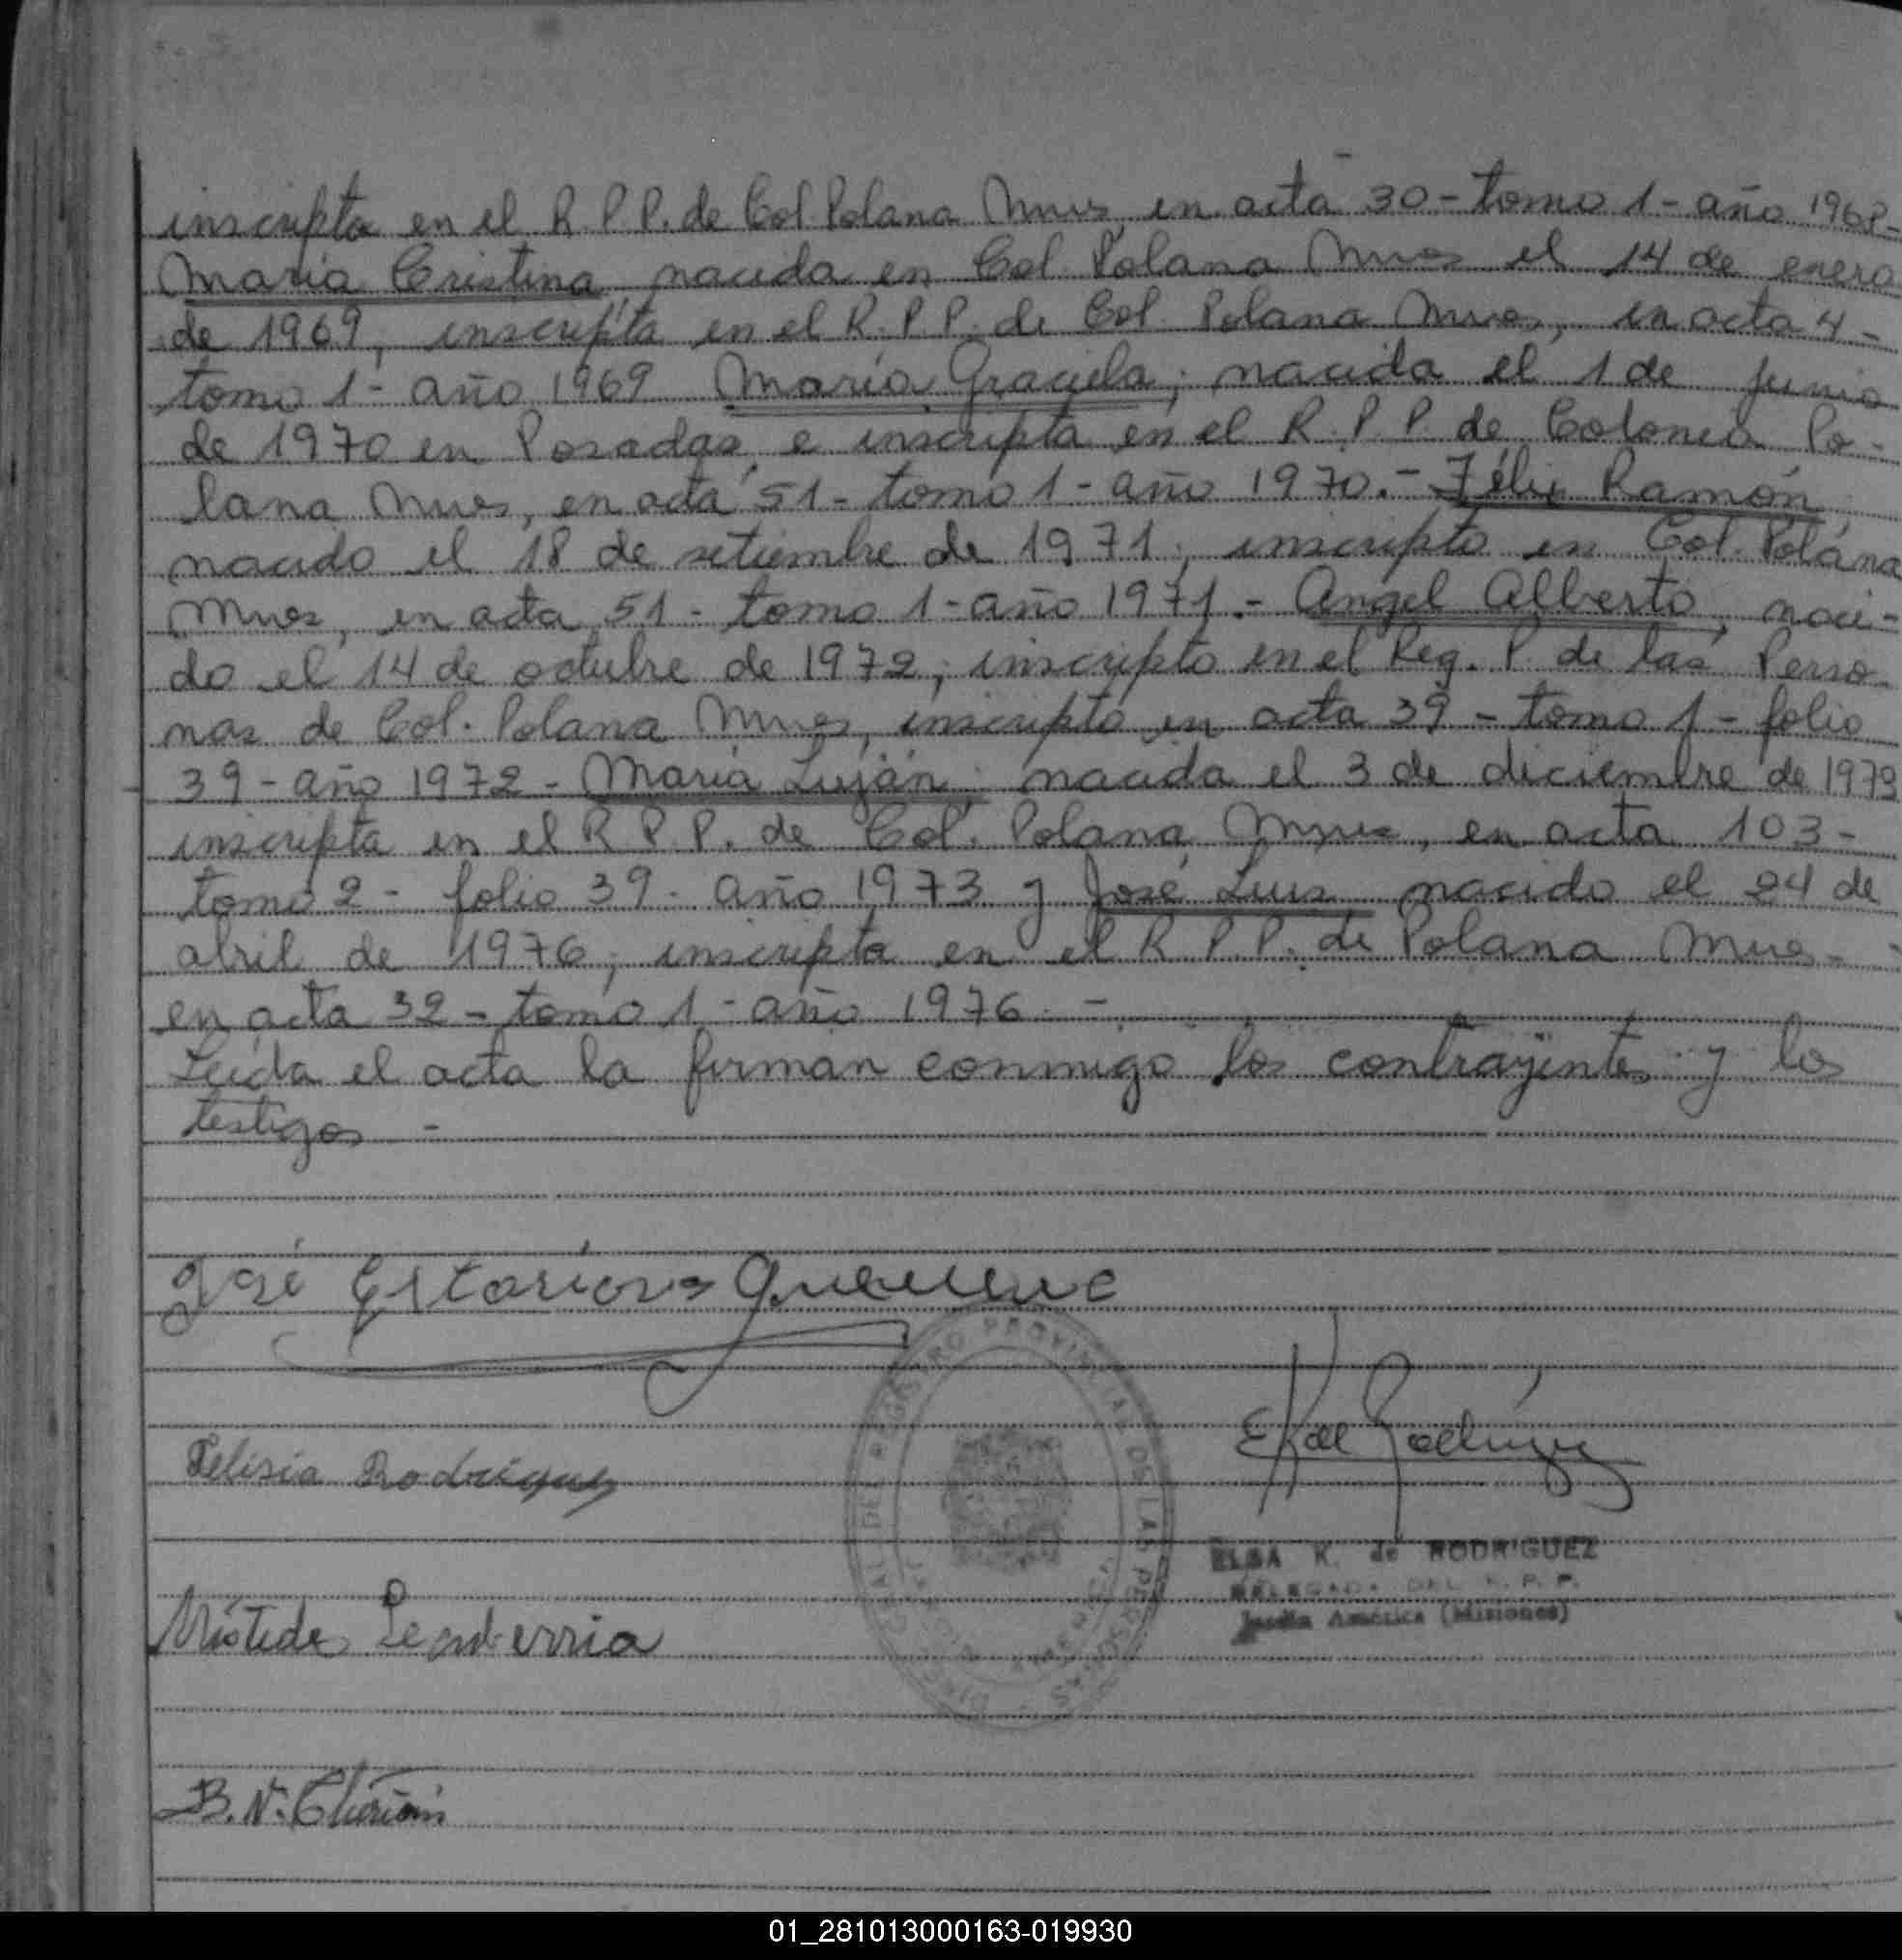 inscripta en el R. P. P. de Col. Polana Mnes, en acta 30 - tomo 1 - año 1968 -
María Cristina, nacida en Col. Polana Mnes el 14 de enero
de 1969, inscripta en el R. P. P. de Col. Polana Mnes, en acta 4 -
tomo 1 - año 1969 María Graciela, nacida el 1 de junio
de 1970 en Posadas, e inscripta en el R. P. P. de Colonia Po-
lana Mnes, en acta 51 - tomo 1 - año 1970. - Félix Ramón,
nacido el 18 de setiembre de 1971, inscripto en Col. Polana
Mnes, en acta 51 - tomo 1 - año 1971. - Angel Alberto, naci-
do el 14 de octubre de 1972, inscripto en el Reg. P. de las Perso-
nas de Col. Polana Mnes, inscripto en acta 39 - tomo 1 - folio
39 - año 1972 - María Luján, nacida el 3 de diciembre de 1973
inscripta en el R. P. P. de Col. Polana Mnes, en acta 103 -
tomo 2 - folio 39 - año 1973 y José Luis nacido el 24 de
abril de 1976, inscripta en el R. P. P. de Polana Mnes -
en acta 32 - tomo 1 - año 1976. -
Leída el acta la firman conmigo los contrayentes y los
testigos -
José
REGISTRO PROVINCIAL DE LAS PERSONAS
Felisia Rodriguez
ELSA K. de RODRIGUEZ
DELEGADA DEL R. P. P.
Jardín América (Misiones)
B. N.
01_281013000163-019930